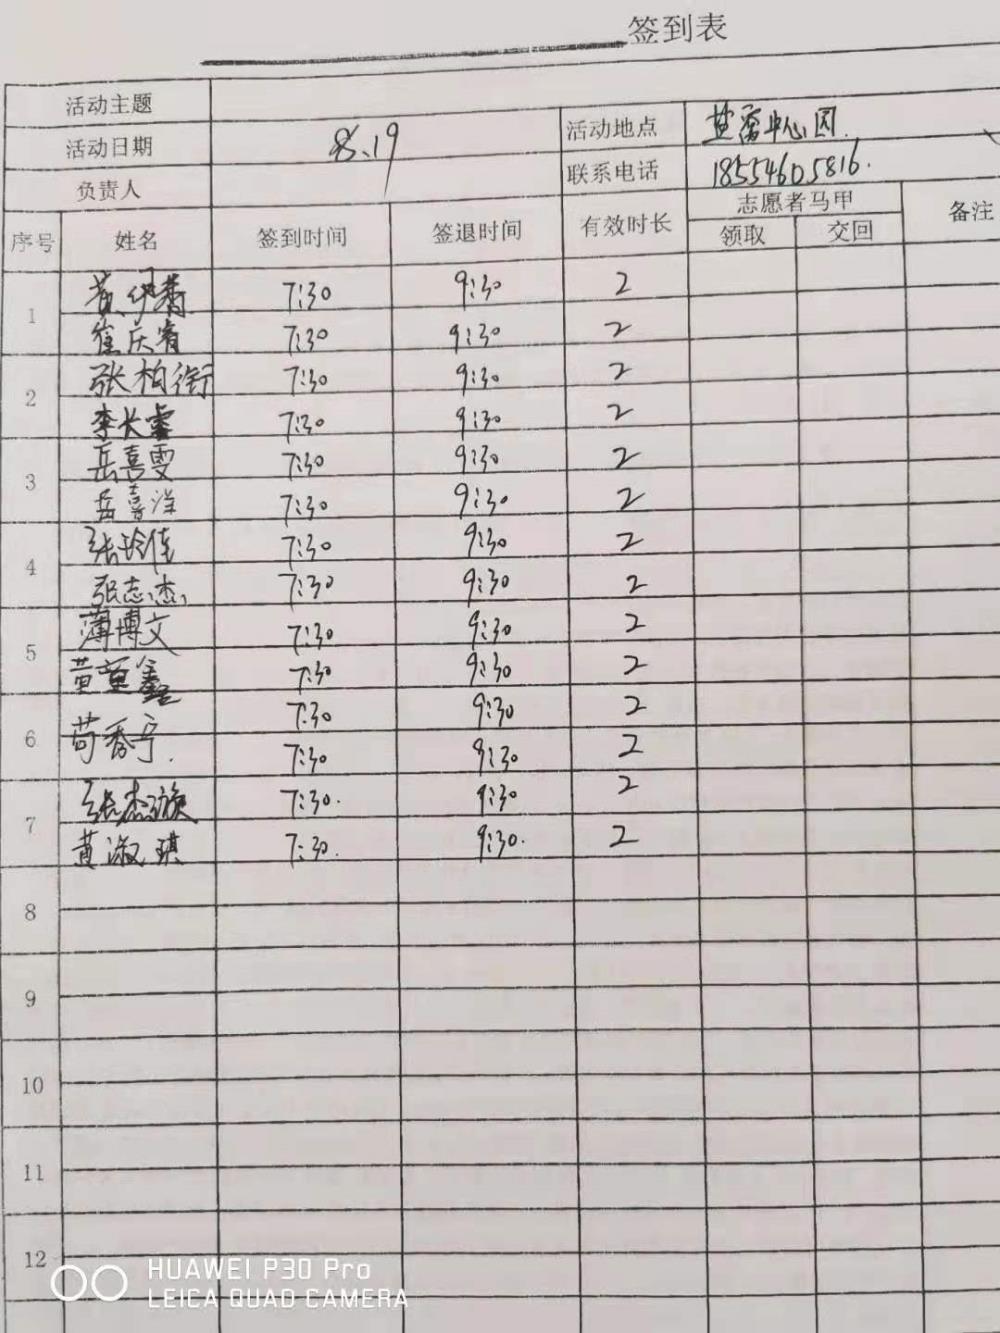 签到表
活动主题
活动日期 8.19 活动地点 盐窝中心园.
负责人 联系电话 18554605816.
序号 姓名 签到时间 签退时间 有效时长 志愿者马甲 备注
领取 交回
1 7:30 9:30 2
崔庆宥 7:30 9:30 2
2 张柏衔 7:30 9:30 2
李长睿 7:30 9:30 2
3 岳喜雯 7:30 9:30 2
岳喜洋 7:30 9:30 2
4 张玲佳 7:30 9:30 2
张志杰 7:30 9:30 2
5 薄博文 7:30 9:30 2
黄鑫 7:30 9:30 2
6 苟秀宁. 7:30 9:30 2
7:30 9:30 2
7 张杰旋 7:30. 9:30 2
黄淑琪 7:30. 9:30. 2
8
9
10
11
12
HUAWEI P30 Pro
LEICA QUAD CAMERA